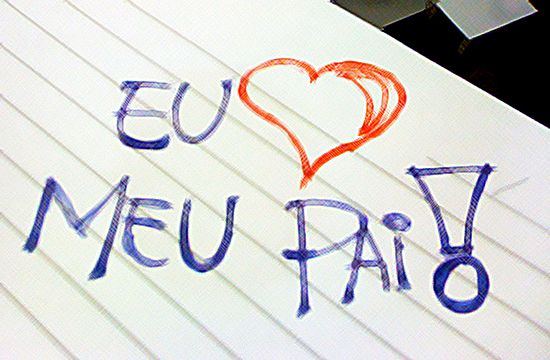 EU ❤
MEU PAI!